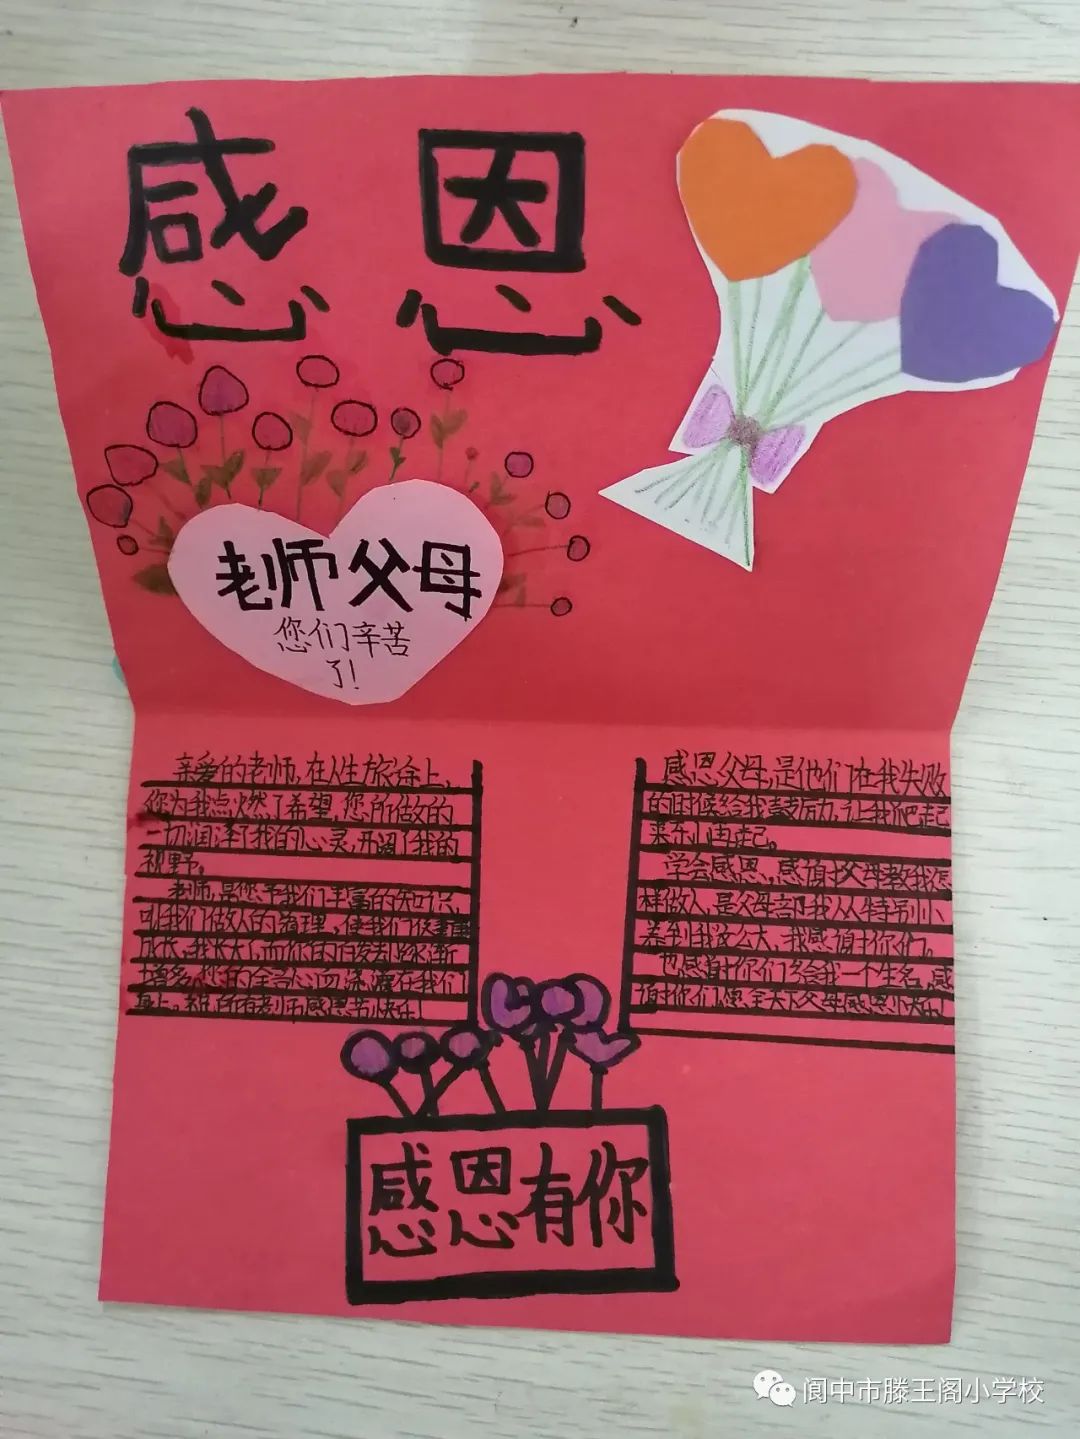 感恩
老师父母
您们辛苦
了!
亲爱的老师,在人生旅途上,
您为我点燃了希望,您所做的
一切润泽了我的心灵,开阔了我的
视野。
老师,是您予我们丰富的知识,
我们做人的道理,使我们
成长,我长大了,而你的
您的全部心血浇灌在我们
身上。祝所有老师感恩节快乐!
感恩父母,是他们在我失败
的时候给我鼓励,让我爬起
来东山再起。
学会感恩,感谢父母教我怎
样做人,是父母部我从特别小
养到我这么大,我感谢你们。
也感谢你们给我一个生名,感
谢你们,愿全天下父母感恩快乐
感恩有你
阆中市滕王阁小学校